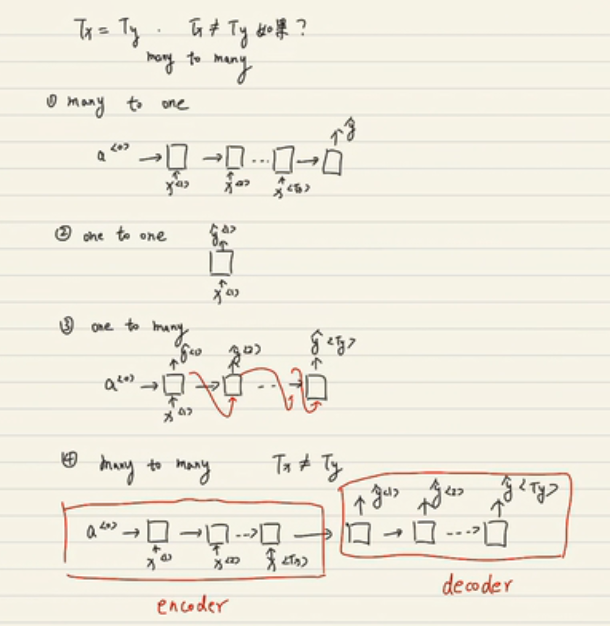 Tx = Ty . Tx ≠ Ty 如果?
many to many
① many to one
ŷ
a<0>
x<1> x<2> ... x<Tx>
② one to one
ŷ<1>
x<1>
③ one to many
ŷ<1> ŷ<2> ŷ<Ty>
a<0> ...
x<1>
④ many to many Tx ≠ Ty
ŷ<1> ŷ<2> ŷ<Ty>
a<0>
x<1> x<2> x<Tx>
encoder
decoder